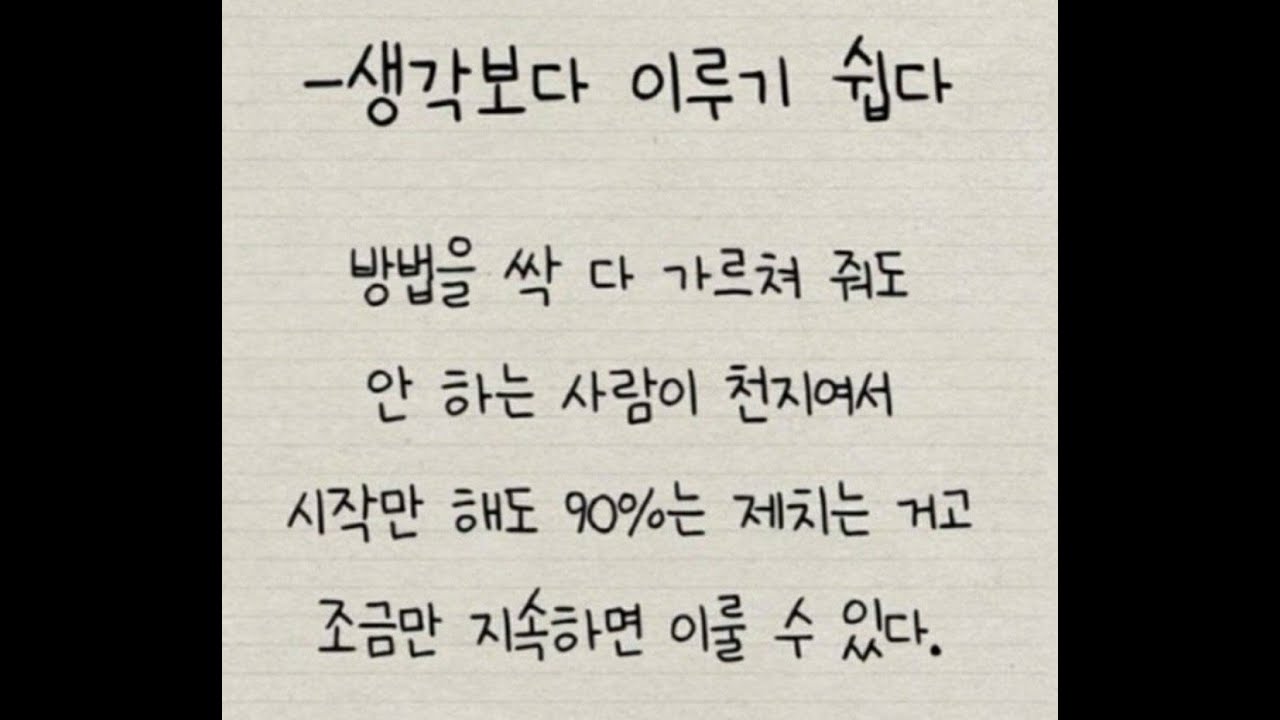 -생각보다 이루기 쉽다
방법을 싹 다 가르쳐 줘도
안 하는 사람이 천지여서
시작만 해도 90%는 제치는 거고
조금만 지속하면 이룰 수 있다.